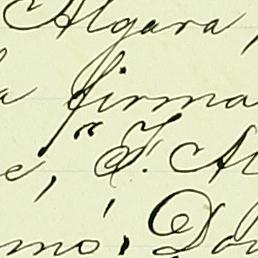 Algara,
a firma
e, "F. Al
mo, Do